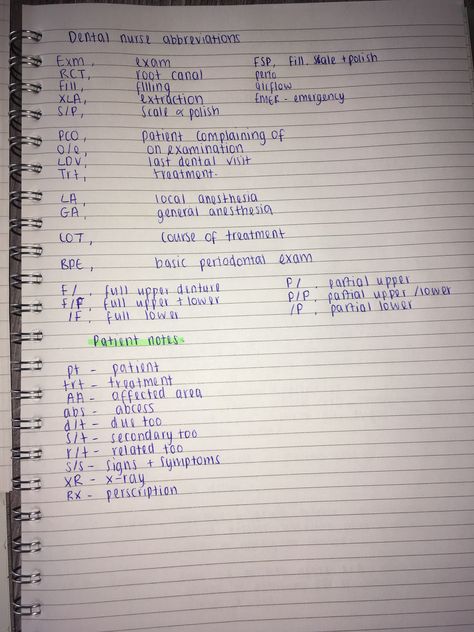 Dental nurse abbreviations
Exm, exam FSP, fill. scale + polish
RCT, root canal perio
Fill, filling airflow
XLA, extraction EMER - emergency
S/P, scale & polish
PCO, patient complaining of
O/e, on examination
LDV, last dental visit
Trt, treatment.
LA, local anesthesia
GA, general anesthesia
COT, course of treatment
BPE, basic periodontal exam
F/, full upper denture P/, partial upper
F/F, full upper + lower P/P, partial upper/lower
/F, full lower /P, partial lower
Patient notes
pt - patient
trt - treatment
AA - affected area
abs - abcess
d/t - due too
s/t - secondary too
r/t - related too
s/s - signs + symptoms
XR - x-ray
RX - perscription